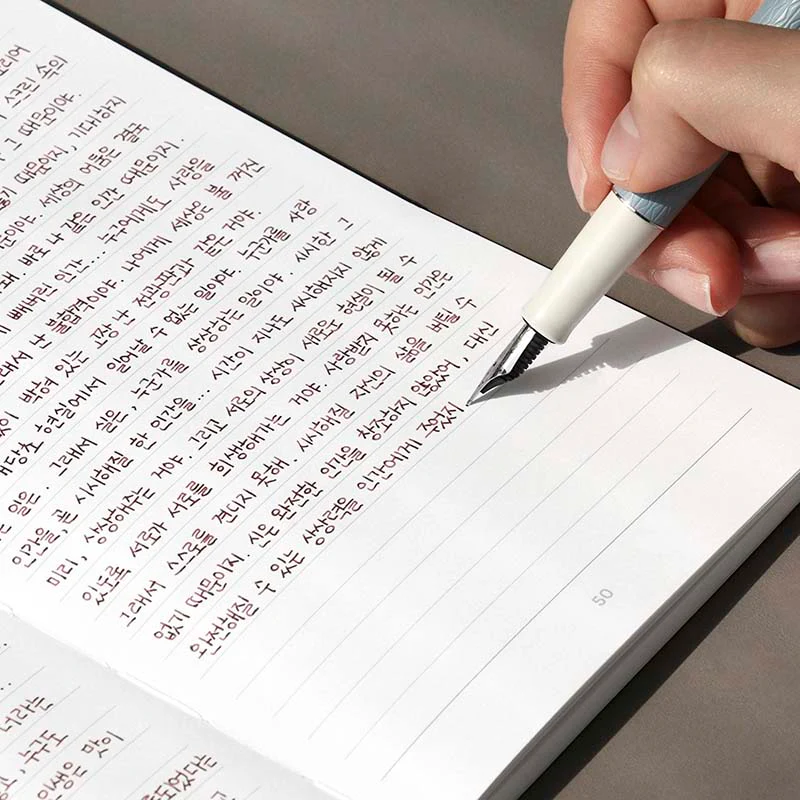 스크린 속의
그 때문이야.
때문이지, 기대하지
세상의 어둠은 결국
바로 나 같은 인간 때문이지.
빼버린 인간... 누구에게도 사랑을
그래서 난 불합격이야. 나에게 세상은 불 꺼진
박혀 있는 고장 난 전광판과 같은 거야.
애당초 현실에서 일어날 수 없는 일이야. 누군가를 사랑
는 일은. 그래서 실은, 누군가를 상상하는 일이야. 시시한 그
인간을, 곧 시시해질 한 인간을... 시간이 지나도 시시해지지 않게
미리, 상상해주는 거야. 그리고 서로의 상상이 새로운 현실이 될 수
있도록 서로가 서로를 희생해가는 거야. 사랑받지 못하는 인간은
그래서 스스로를 견디지 못해. 시시해질 자신의 삶을 버틸 수
없기 때문이지. 신은 완전한 인간을 창조하지 않았어, 대신
완전해질 수 있는 상상력을 인간에게 주었지
50
너라는
누구도
인생은 맛이
되었다는